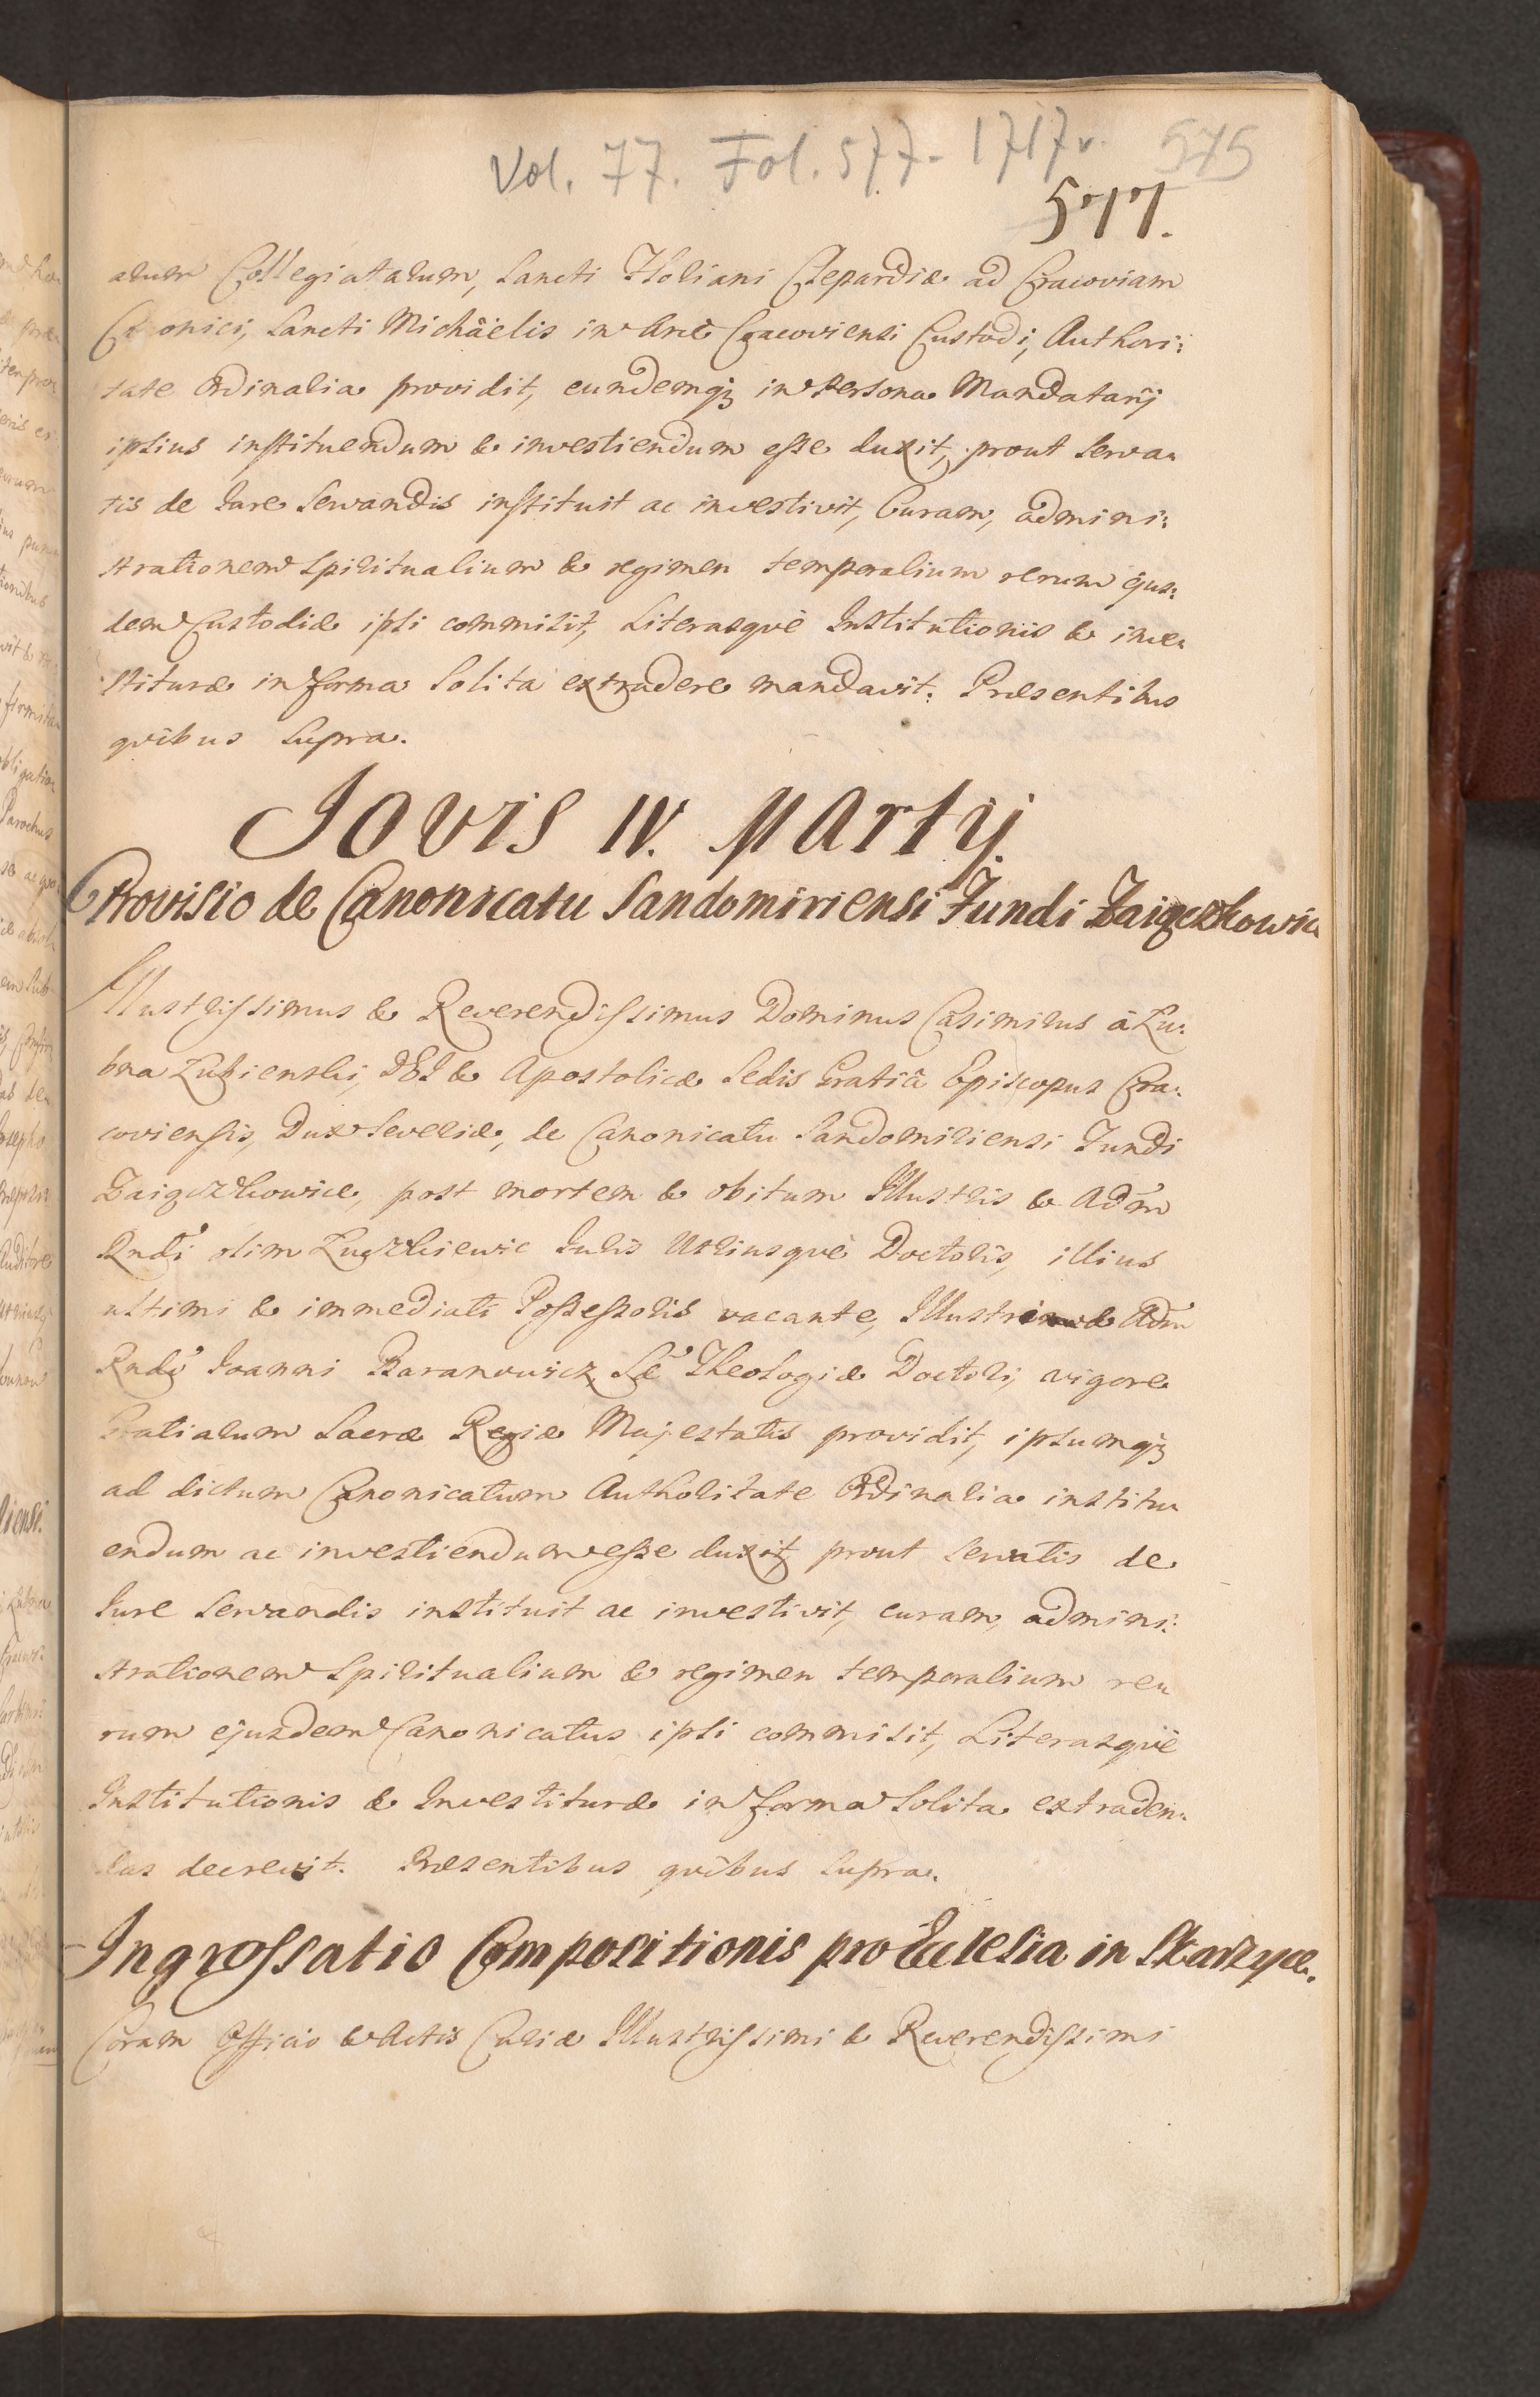 Vol. 77. Fol. 577. 1717 r. 575
577.
arum Collegiatarum, Sancti Floriani Clepardiæ ad Cracoviam
Canonici, Sancti Michäelis in Arce Cracoviensi Custodi, Authori:
tate Ordinaria providit, eundemq3 in Persona Mandatarij
ipsius instituendum & investiendum esse duxit, prout Serva„
tis de Jure Servandis instituit ac investivit, Curam, admini:
strationem Spiritualium & regimen temporalium rerum ejus:
dem Custodiæ ipsi commisit, Literasquè Institutionis & inve„
stituræ in forma Solita extradere mandavit. Præsentibus
quibus Supra.
Jovis IV. Martij.
Provisio de Canonicatu Sandomiriensi Fundi Zaiączkowice
Illustrissimus & Reverendissimus Dominus Casimirus à Łu:
bna Łubienski, DEI & Apostolicæ Sedis Gratiâ Episcopus Cra:
coviensis, Dux Severiæ, de Canonicatu Sandomiriensi Fundi
Zaiączkowice, post mortem & obitum Illustris & Adm
Rndi olim Łuczkiewic Juris Utriusquè Doctoris, illius
ultimi & immediati Possessoris vacante, Illustri & Adm
Rndo Joanni Baranowicz Sæ Theologiæ Doctori, vigore
Gratiarum Sacræ Regiæ Majestatis providit, ipsumq3
ad dictum Canonicatum Authoritate Ordinaria institu„
endum ac investiendum esse duxit, prout Servatis de
Jure Servandis instituit ac investivit, curam, admini:
strationem Spiritualium & regimen temporalium re„
rum ejusdem Canonicatus ipsi commisit, Literasquè
Institutionis & Investituræ in forma Solita extraden:
das decrevit. Præsentibus quibus Supra.
Ingrossatio Compositionis pro Ecclesia in Skarzyce.
Coram Officio & Actis Curiæ Illustrissimi & Reverendissimi